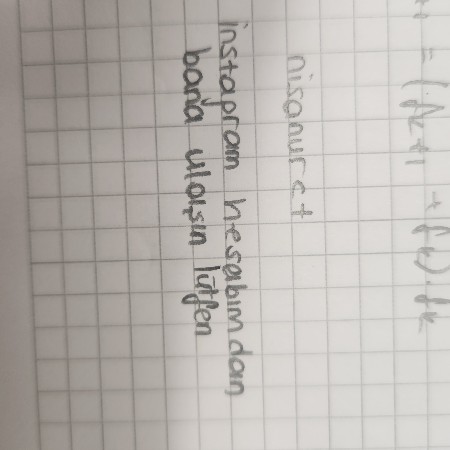 nisanurct
instagram hesabımdan
bana ulaşsın lütfen